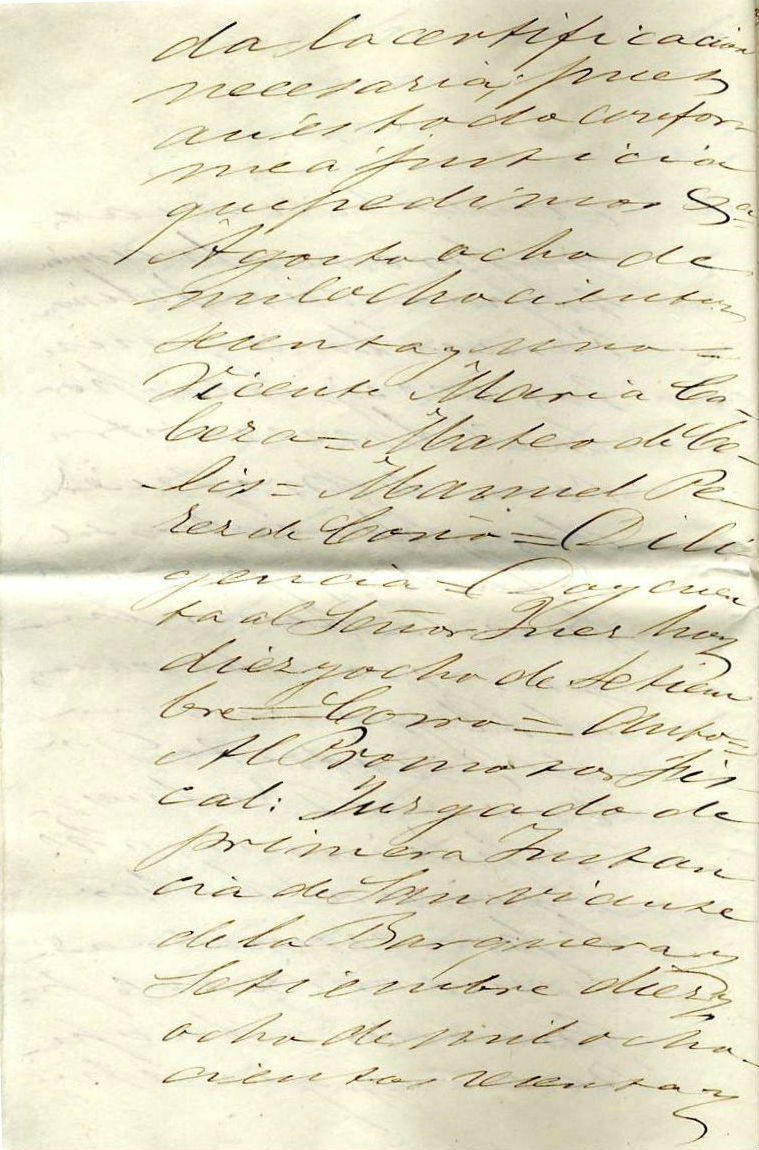 da la certificacion
necesaria, pues
asi és todo confor-
me a justicia
que pedimos &a
Agosto ocho de
mil ochocientos
sesenta y uno =
Vicente Maria Ca-
beza = Mateo de Ce-
lis = Manuel Pe
rez de Cosio = Dili
gencia = Doy cuen
ta al Señor Juez hoy
diez y ocho de Setiem
bre = Corro = Auto =
Al Promotor Fis-
cal: Juzgado de
primera Instan
cia de San Vicente
de la Barquera y
Setiembre diez y
ocho de mil ocho-
cientos sesenta y